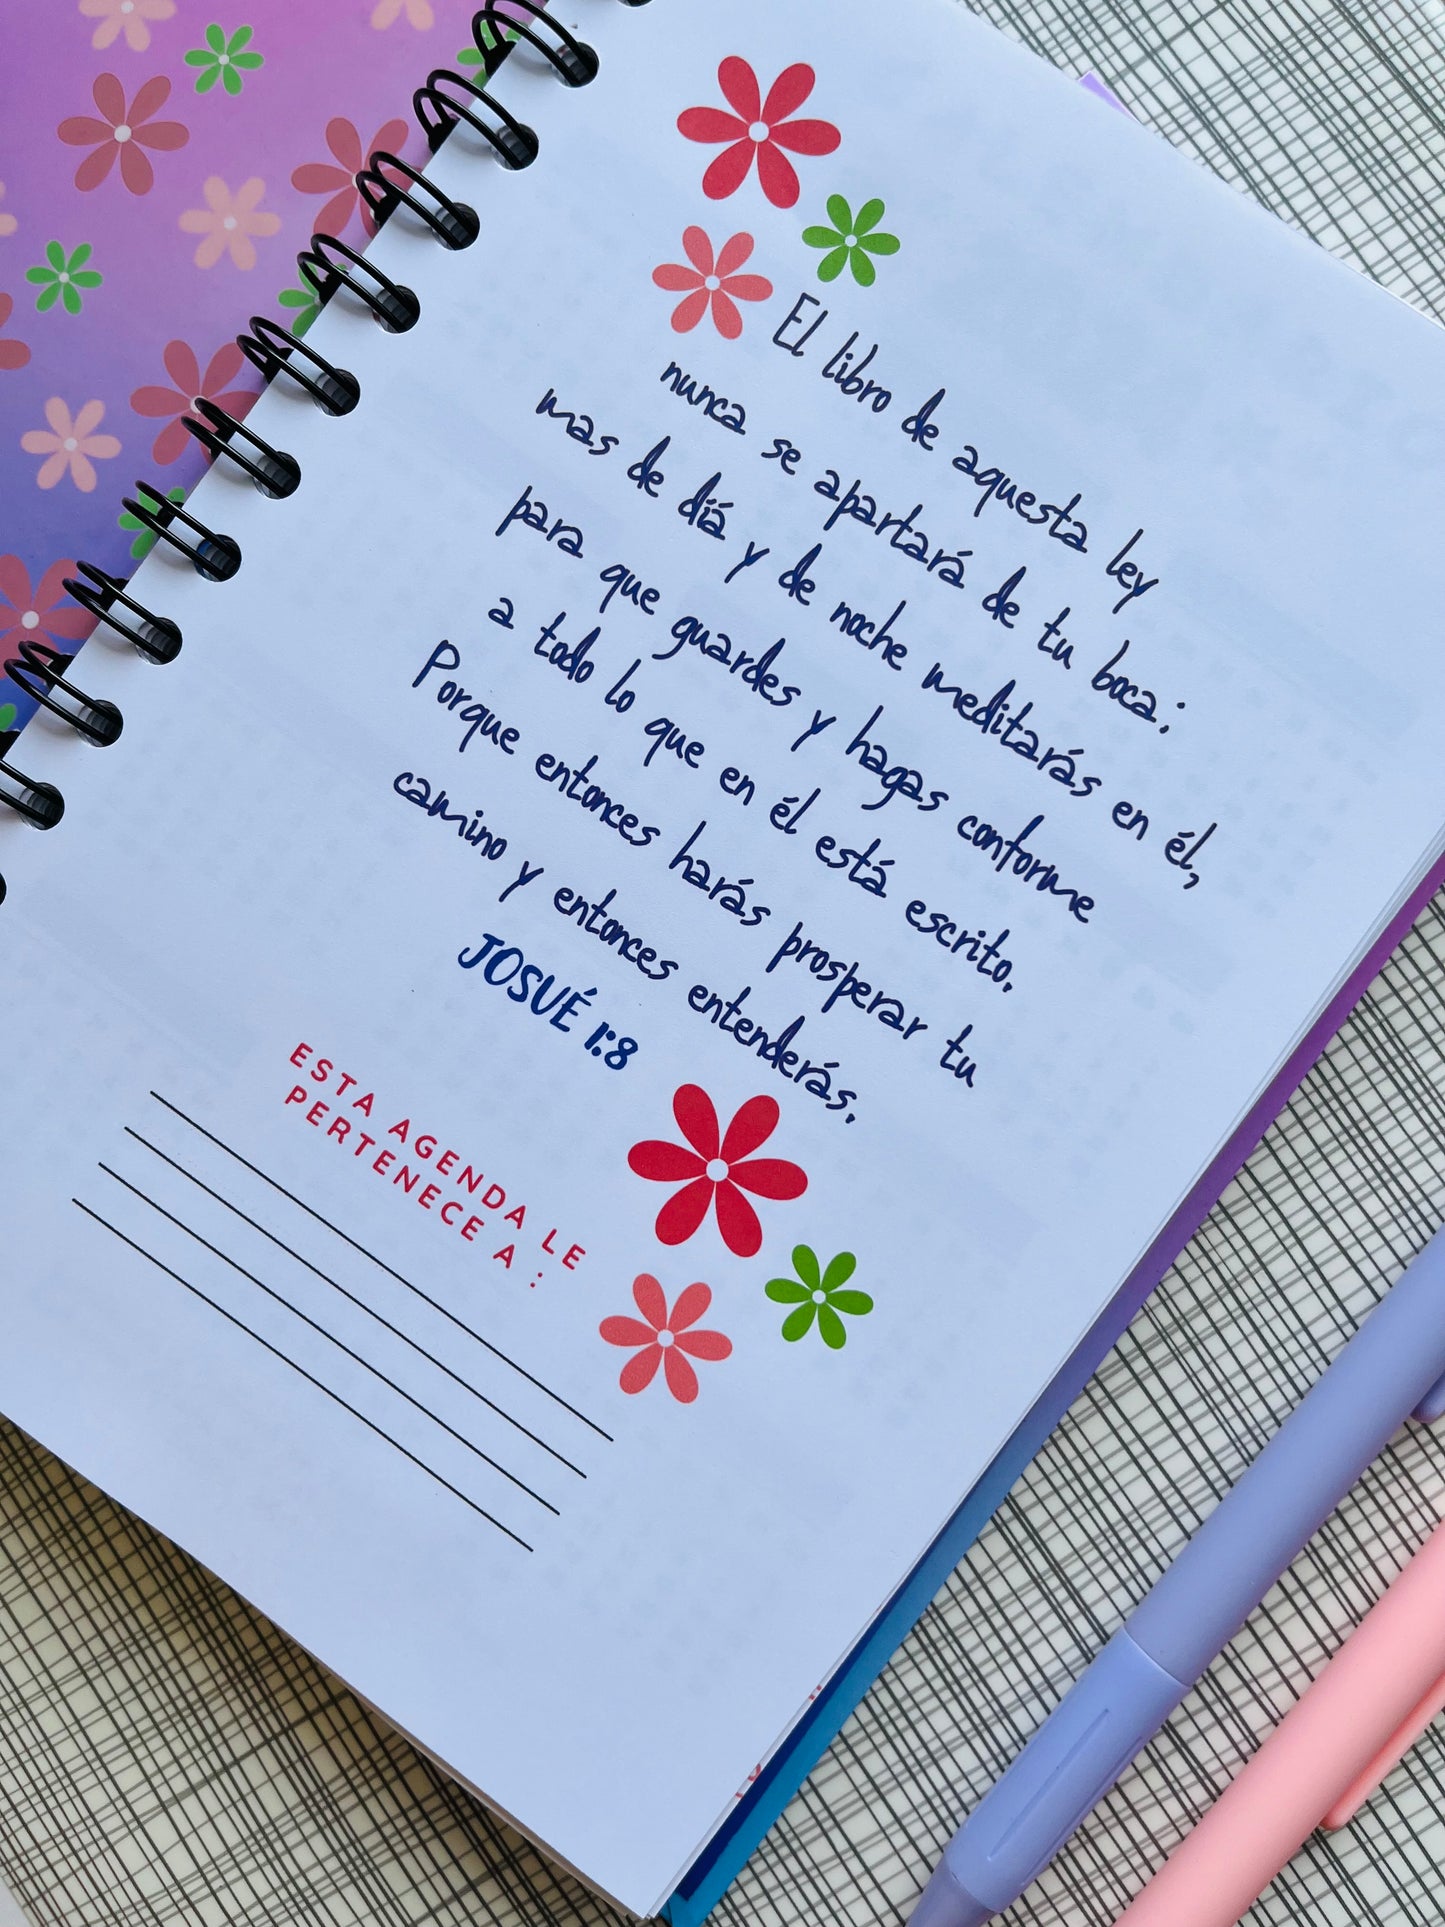 El libro de aquesta ley
nunca se apartará de tu boca:
mas de díá y de noche meditarás en él,
para que guardes y hagas conforme
a todo lo que en él está escrito.
Porque entonces harás prosperar tu
camino y entonces entenderás.
JOSUÉ 1:8
ESTA AGENDA LE
PERTENECE A :